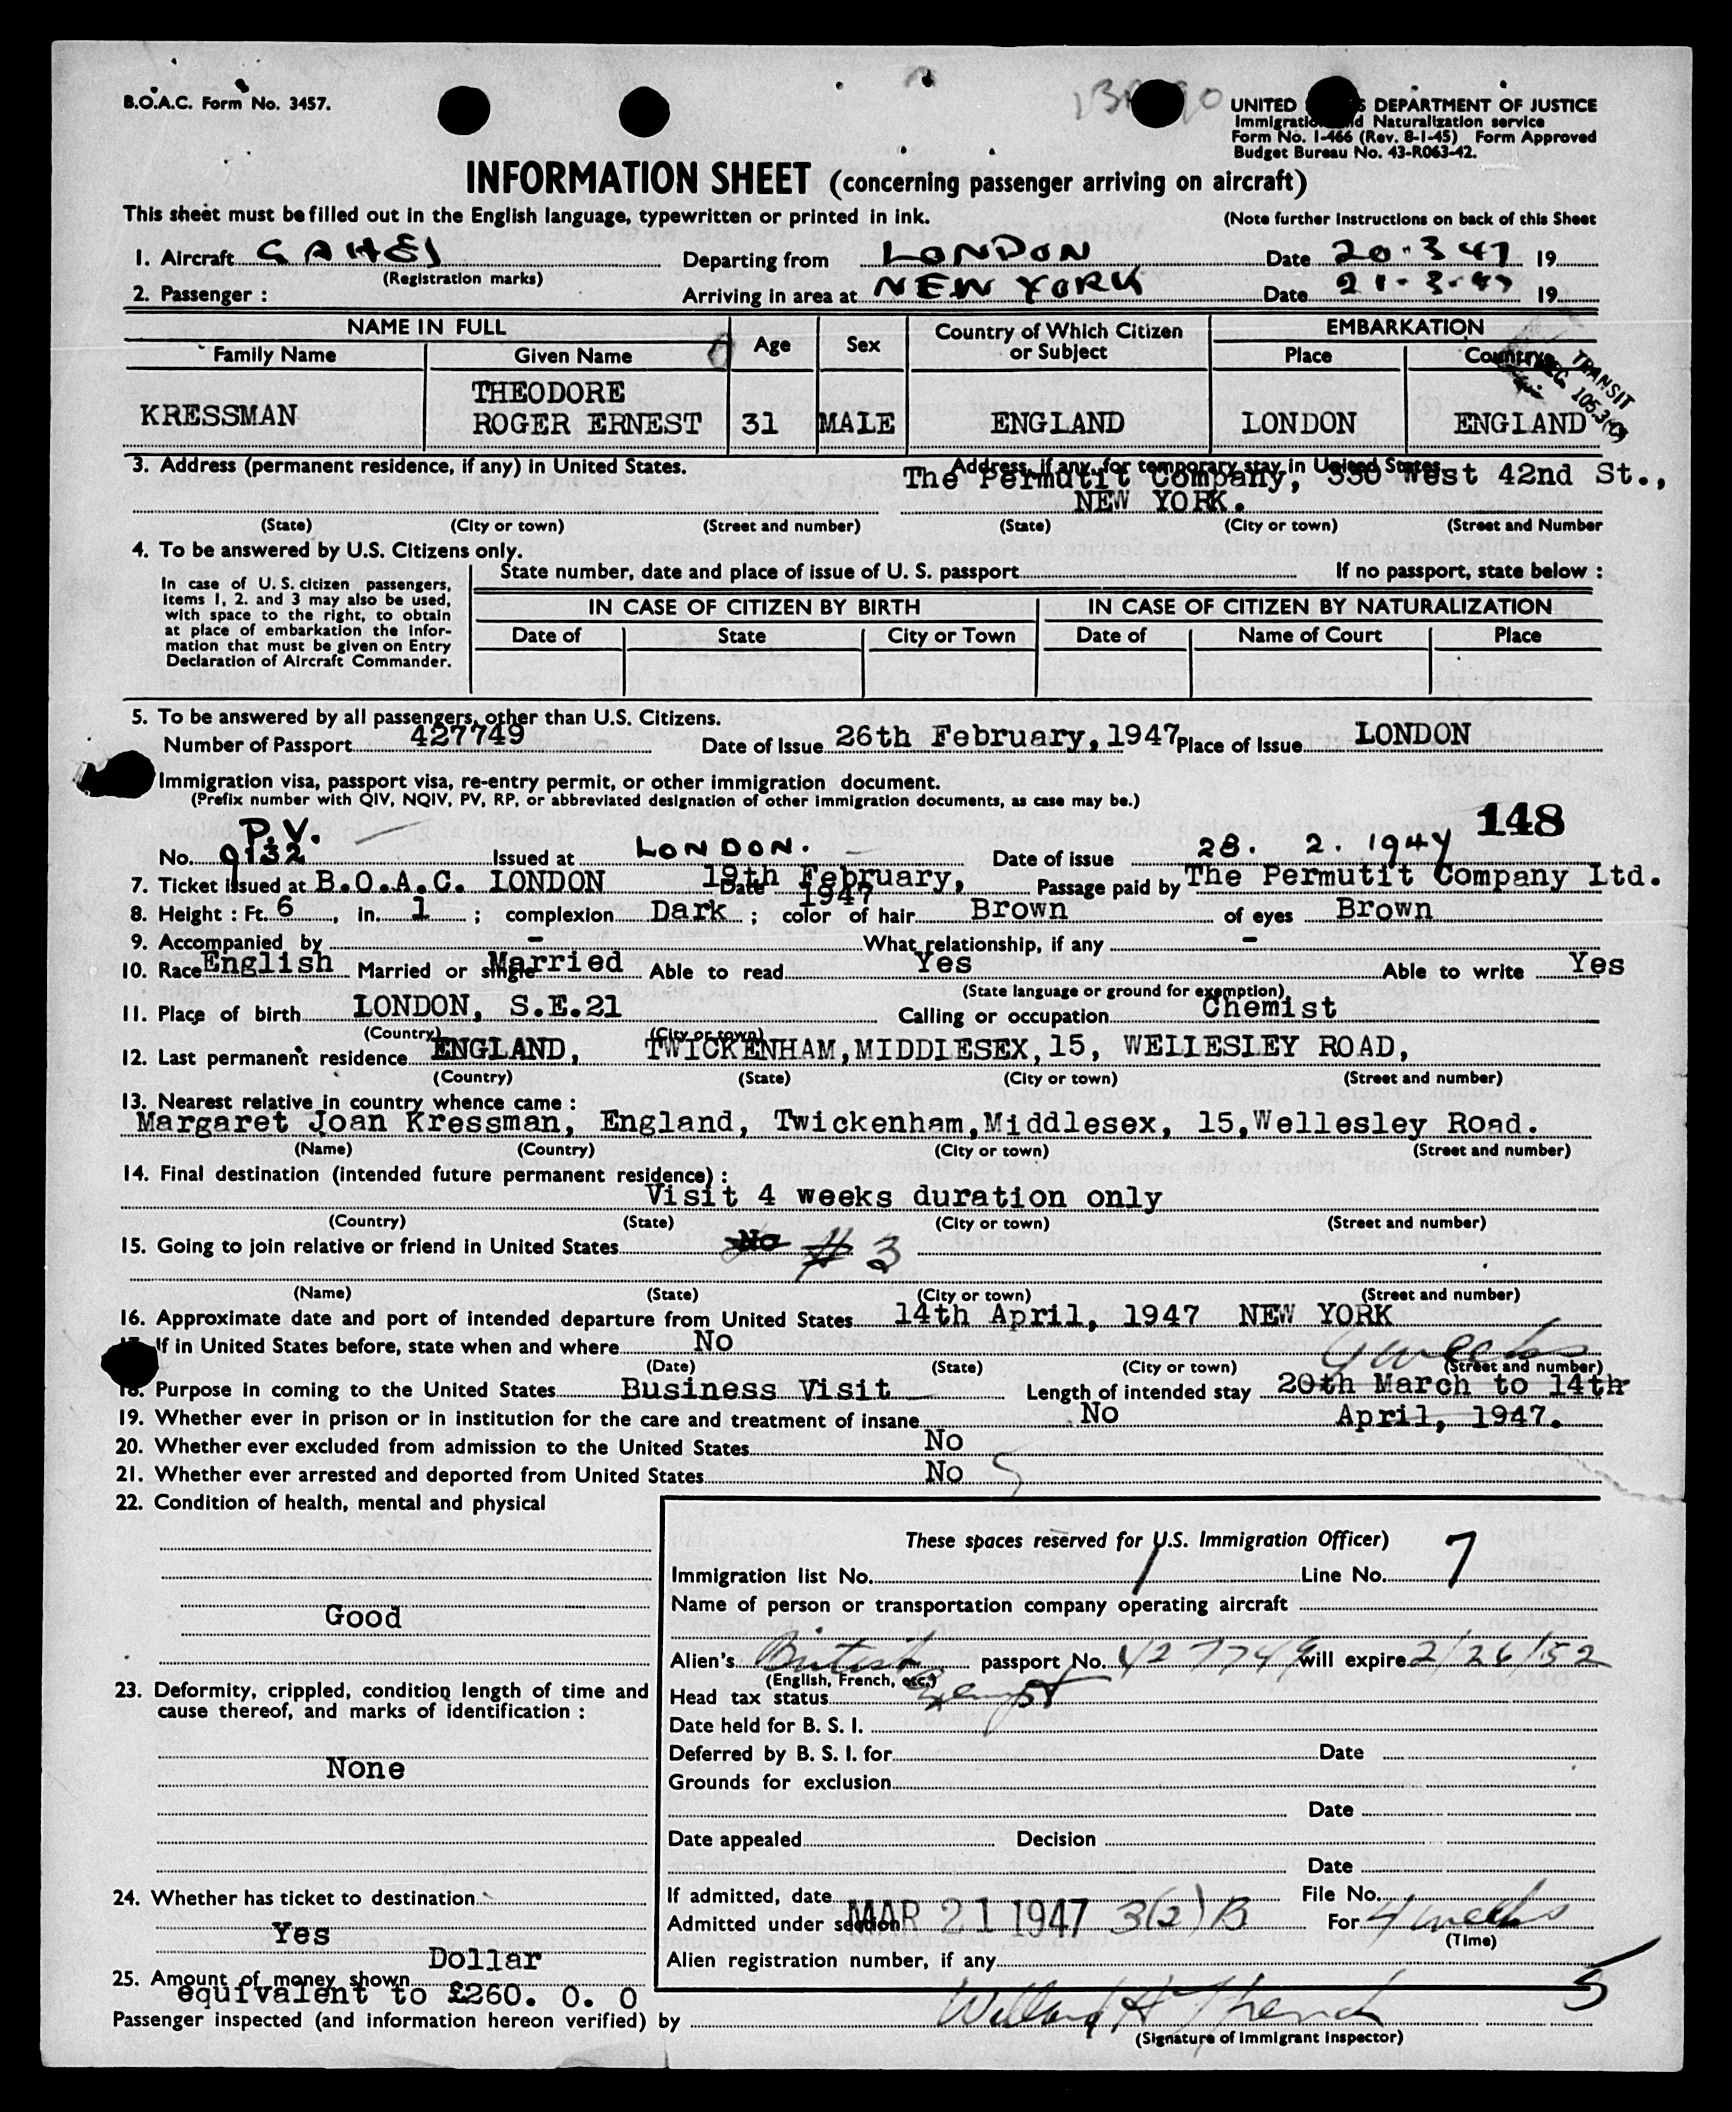 B.O.A.C. Form No. 3457.
UNITED DEPARTMENT OF JUSTICE
Immigration Naturalization service
Form No. I-466 (Rev. 8-1-45) Form Approved
Budget Bureau No. 43-R063-42.
INFORMATION SHEET (concerning passenger arriving on aircraft)
This sheet must be filled out in the English language, typewritten or printed in ink. (Note further instructions on back of this Sheet
1. Aircraft GAHEJ Departing from LONDON Date 20.3 47 19
(Registration marks)
2. Passenger : Arriving in area at NEW YORK Date 21-3-47 19
NAME IN FULL Age Sex Country of Which Citizen or Subject EMBARKATION
Family Name Given Name Place Country
TRANSIT
SEC. 105.3(c)
THEODORE
KRESSMAN ROGER ERNEST 31 MALE ENGLAND LONDON ENGLAND
3. Address (permanent residence, if any) in United States. Address, if any, for temporary stay in United States.
The Permutit Company, 330 West 42nd St.,
NEW YORK.
(State) (City or town) (Street and number) (State) (City or town) (Street and Number
4. To be answered by U.S. Citizens only.
In case of U.S. citizen passengers,
items 1, 2. and 3 may also be used,
with space to the right, to obtain
at place of embarkation the infor-
mation that must be given on Entry
Declaration of Aircraft Commander.
State number, date and place of issue of U. S. passport If no passport, state below :
IN CASE OF CITIZEN BY BIRTH IN CASE OF CITIZEN BY NATURALIZATION
Date of State City or Town Date of Name of Court Place
5. To be answered by all passengers, other than U.S. Citizens.
Number of Passport 427749 Date of Issue 26th February, 1947 Place of Issue LONDON
Immigration visa, passport visa, re-entry permit, or other immigration document.
(Prefix number with QIV, NQIV, PV, RP, or abbreviated designation of other immigration documents, as case may be.)
148
P.V.
No. 9132 Issued at LONDON. Date of issue 28. 2. 1947
7. Ticket issued at B.O.A.C. LONDON Date 19th February, 1947 Passage paid by The Permutit Company Ltd.
8. Height : Ft. 6, in. 1 ; complexion Dark ; color of hair Brown of eyes Brown
9. Accompanied by - What relationship, if any -
10. Race English Married or single Married Able to read Yes Able to write Yes
(State language or ground for exemption)
11. Place of birth LONDON, S.E.21 Calling or occupation Chemist
(Country) (City or town)
12. Last permanent residence ENGLAND, TWICKENHAM, MIDDLESEX, 15, WELLESLEY ROAD,
(Country) (State) (City or town) (Street and number)
13. Nearest relative in country whence came :
Margaret Joan Kressman, England, Twickenham, Middlesex, 15, Wellesley Road.
(Name) (Country) (City or town) (Street and number)
14. Final destination (intended future permanent residence) :
Visit 4 weeks duration only
(Country) (State) (City or town) (Street and number)
15. Going to join relative or friend in United States No # 3
(Name) (State) (City or town) (Street and number)
16. Approximate date and port of intended departure from United States 14th April, 1947 NEW YORK
If in United States before, state when and where No
4 weeks
(Date) (State) (City or town) (Street and number)
18. Purpose in coming to the United States Business Visit Length of intended stay 20th March to 14th
19. Whether ever in prison or in institution for the care and treatment of insane No April, 1947.
20. Whether ever excluded from admission to the United States No
21. Whether ever arrested and deported from United States No
22. Condition of health, mental and physical
Good
23. Deformity, crippled, condition length of time and
cause thereof, and marks of identification :
None
24. Whether has ticket to destination
Yes
25. Amount of money shown Dollar
equivalent to £260. 0. 0
These spaces reserved for U.S. Immigration Officer)
Immigration list No. 1 Line No. 7
Name of person or transportation company operating aircraft
Alien's British passport No. 427749 will expire 2/26/52
(English, French, etc.)
Head tax status Exempt
Date held for B. S. I.
Deferred by B. S. I. for Date
Grounds for exclusion
Date
Date appealed Decision
Date
If admitted, date File No.
Admitted under section MAR 21 1947 3(2)B For 4 weeks
(Time)
Alien registration number, if any
5
Passenger inspected (and information hereon verified) by
(Signature of Immigrant Inspector)